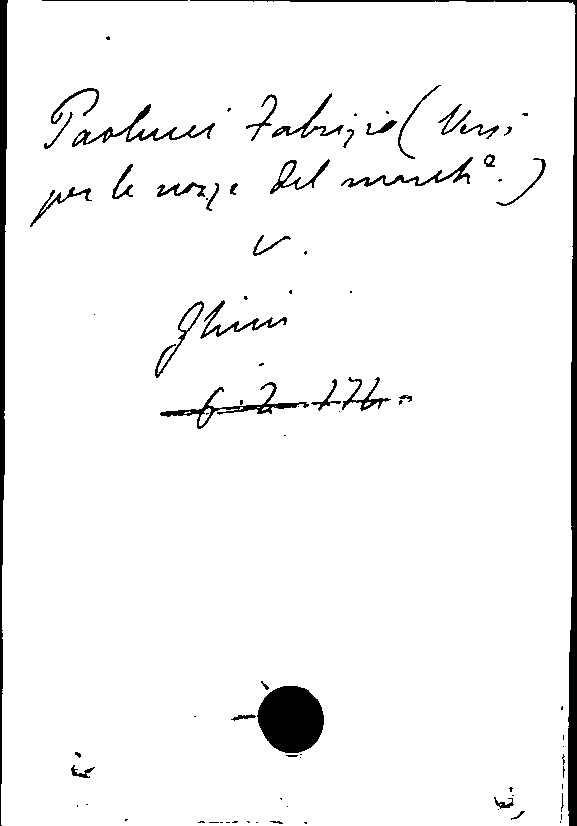 Paolucci Fabrizio (Versi
per le nozze del march°.)
v.
Ghini
6.2.176